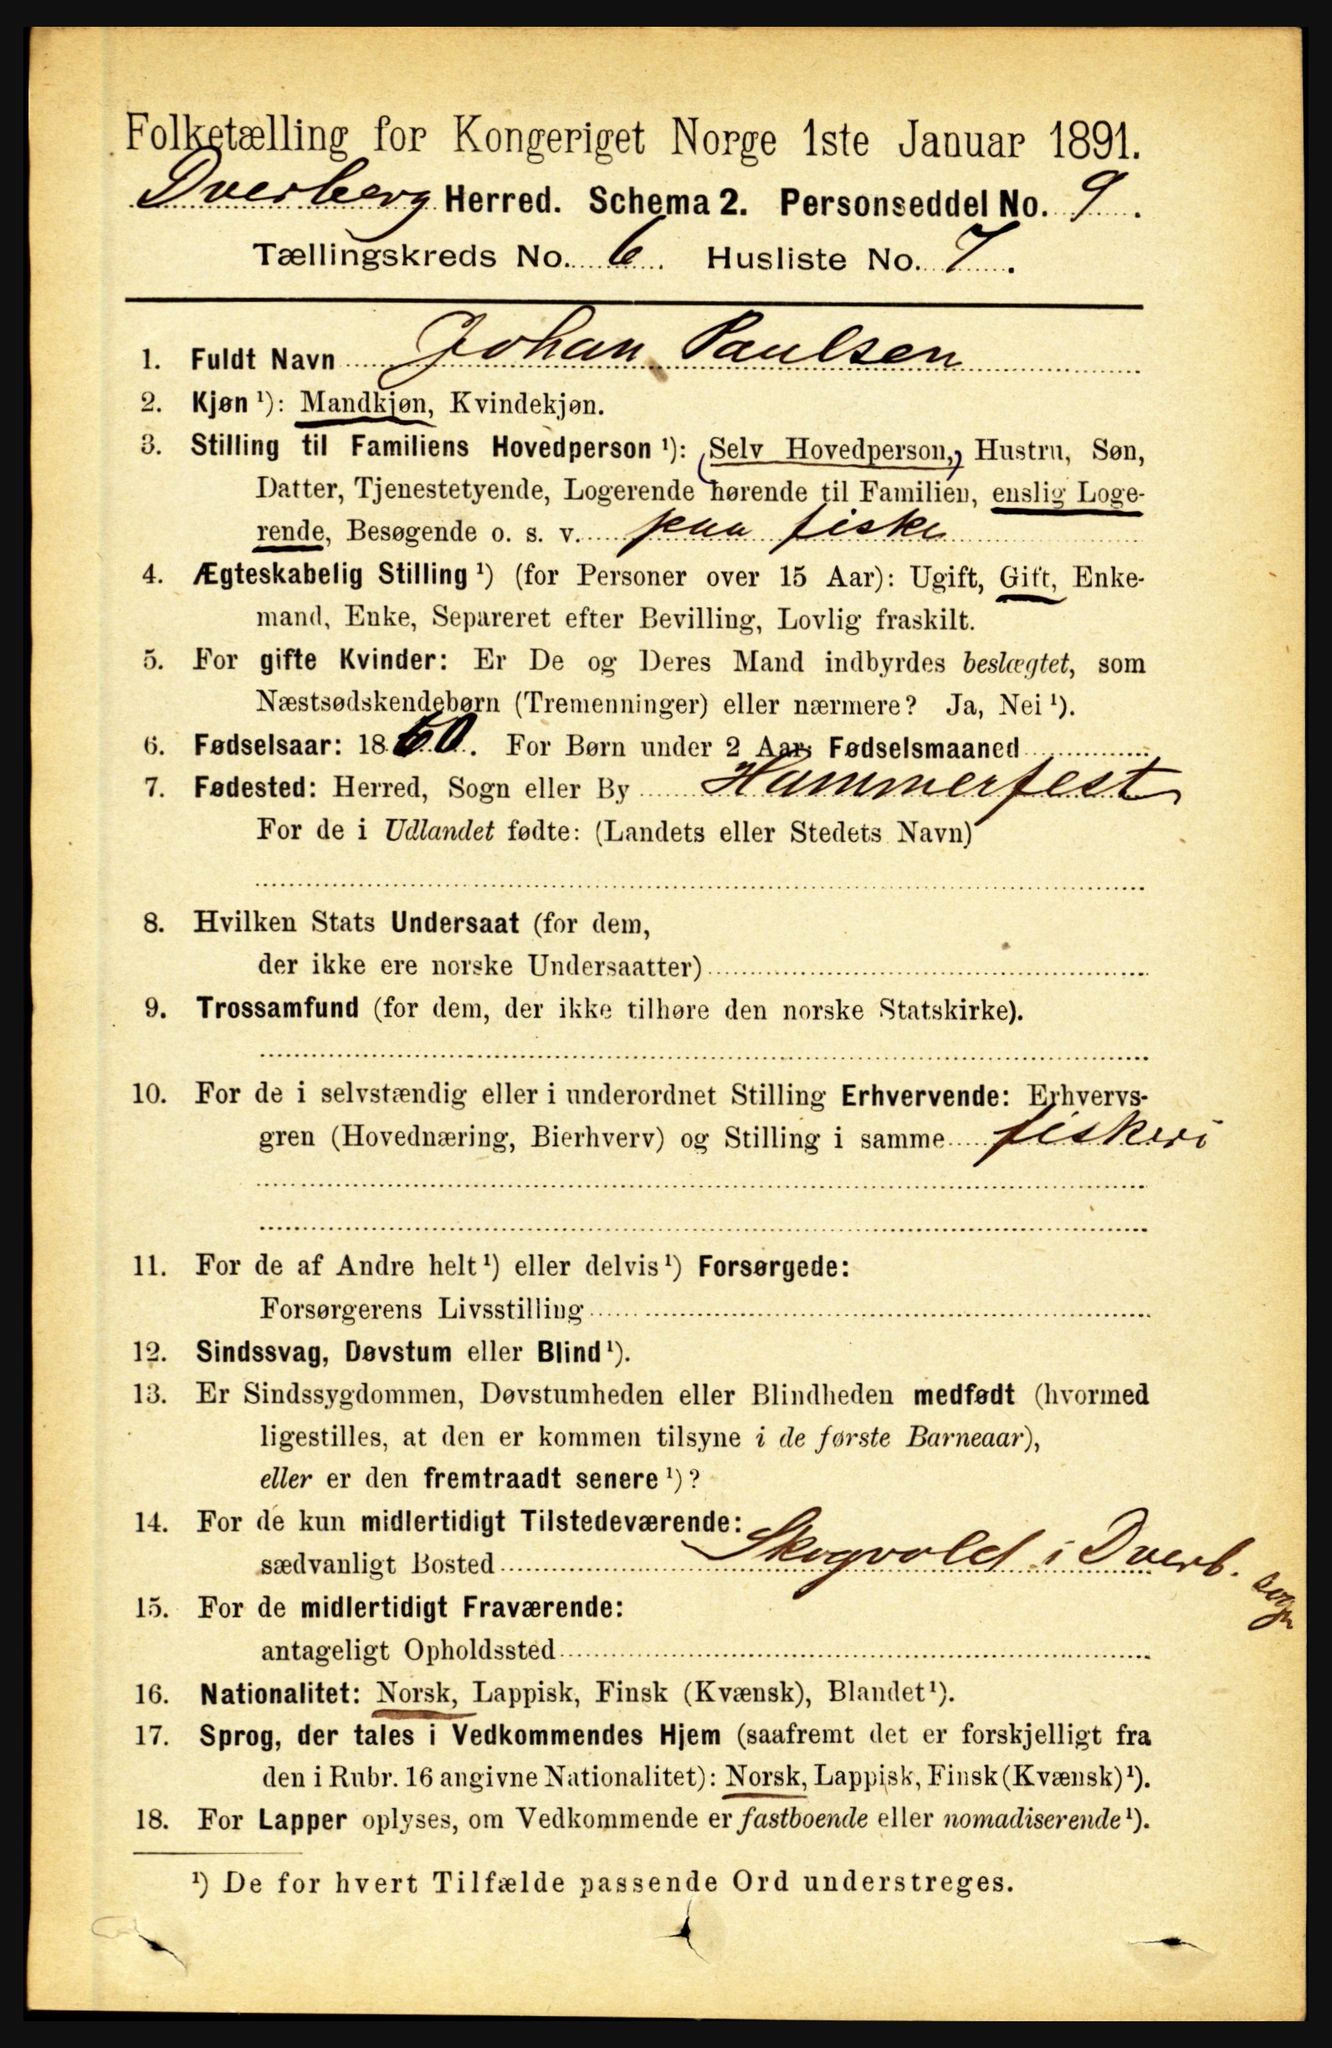 Folketælling for Kongeriget Norge 1ste Januar 1891.
Dverberg Herred. Schema 2. Personseddel No. 9.
Tællingskreds No. 6. Husliste No. 7.
1. Fuldt Navn Johan Paulsen
2. Kjøn ¹): Mandkjøn, Kvindekjøn.
3. Stilling til Familiens Hovedperson ¹): (Selv Hovedperson,) Hustru, Søn,
Datter, Tjenestetyende, Logerende hørende til Familien, enslig Loge-
rende, Besøgende o. s. v. paa fiske
4. Ægteskabelig Stilling ¹) (for Personer over 15 Aar): Ugift, Gift, Enke-
mand, Enke, Separeret efter Bevilling, Lovlig fraskilt.
5. For gifte Kvinder: Er De og Deres Mand indbyrdes beslægtet, som
Næstsødskendebørn (Tremenninger) eller nærmere? Ja, Nei ¹).
6. Fødselsaar: 1860. For Børn under 2 Aar: Fødselsmaaned
7. Fødested: Herred, Sogn eller By Hammerfest
For de i Udlandet fødte: (Landets eller Stedets Navn)
8. Hvilken Stats Undersaat (for dem,
der ikke ere norske Undersaatter)
9. Trossamfund (for dem, der ikke tilhøre den norske Statskirke).
10. For de i selvstændig eller i underordnet Stilling Erhvervende: Erhvervs-
gren (Hovednæring, Bierhverv) og Stilling i samme fiskeri
11. For de af Andre helt ¹) eller delvis ¹) Forsørgede:
Forsørgerens Livsstilling
12. Sindssvag, Døvstum eller Blind ¹).
13. Er Sindssygdommen, Døvstumheden eller Blindheden medfødt (hvormed
ligestilles, at den er kommen tilsyne i de første Barneaar),
eller er den fremtraadt senere ¹)?
14. For de kun midlertidigt Tilstedeværende:
sædvanligt Bosted Skogvold i Dverb. sogn
15. For de midlertidigt Fraværende:
antageligt Opholdssted
16. Nationalitet: Norsk, Lappisk, Finsk (Kvænsk), Blandet ¹).
17. Sprog, der tales i Vedkommendes Hjem (saafremt det er forskjelligt fra
den i Rubr. 16 angivne Nationalitet): Norsk, Lappisk, Finsk (Kvænsk) ¹).
18. For Lapper oplyses, om Vedkommende er fastboende eller nomadiserende ¹).
¹) De for hvert Tilfælde passende Ord understreges.